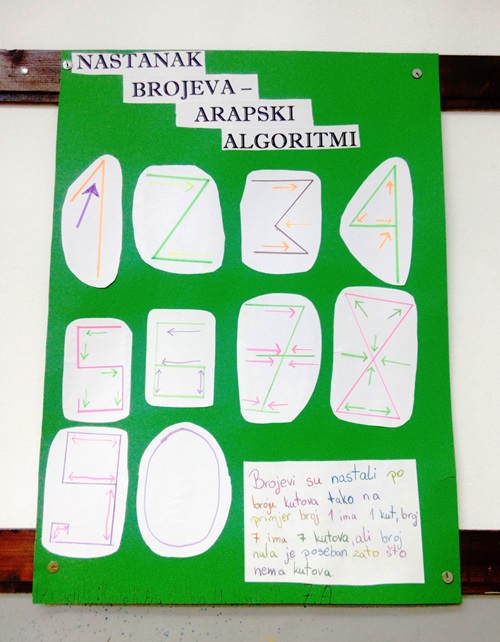 NASTANAK
BROJEVA –
ARAPSKI
ALGORITMI
1 2 3 4
5 6 7 8
9 0
Brojevi su nastali po
broju kutova tako na
primjer broj 1 ima 1 kut, broj
7 ima 7 kutova, ali broj
nula je poseban zato što
nema kutova.
7. A